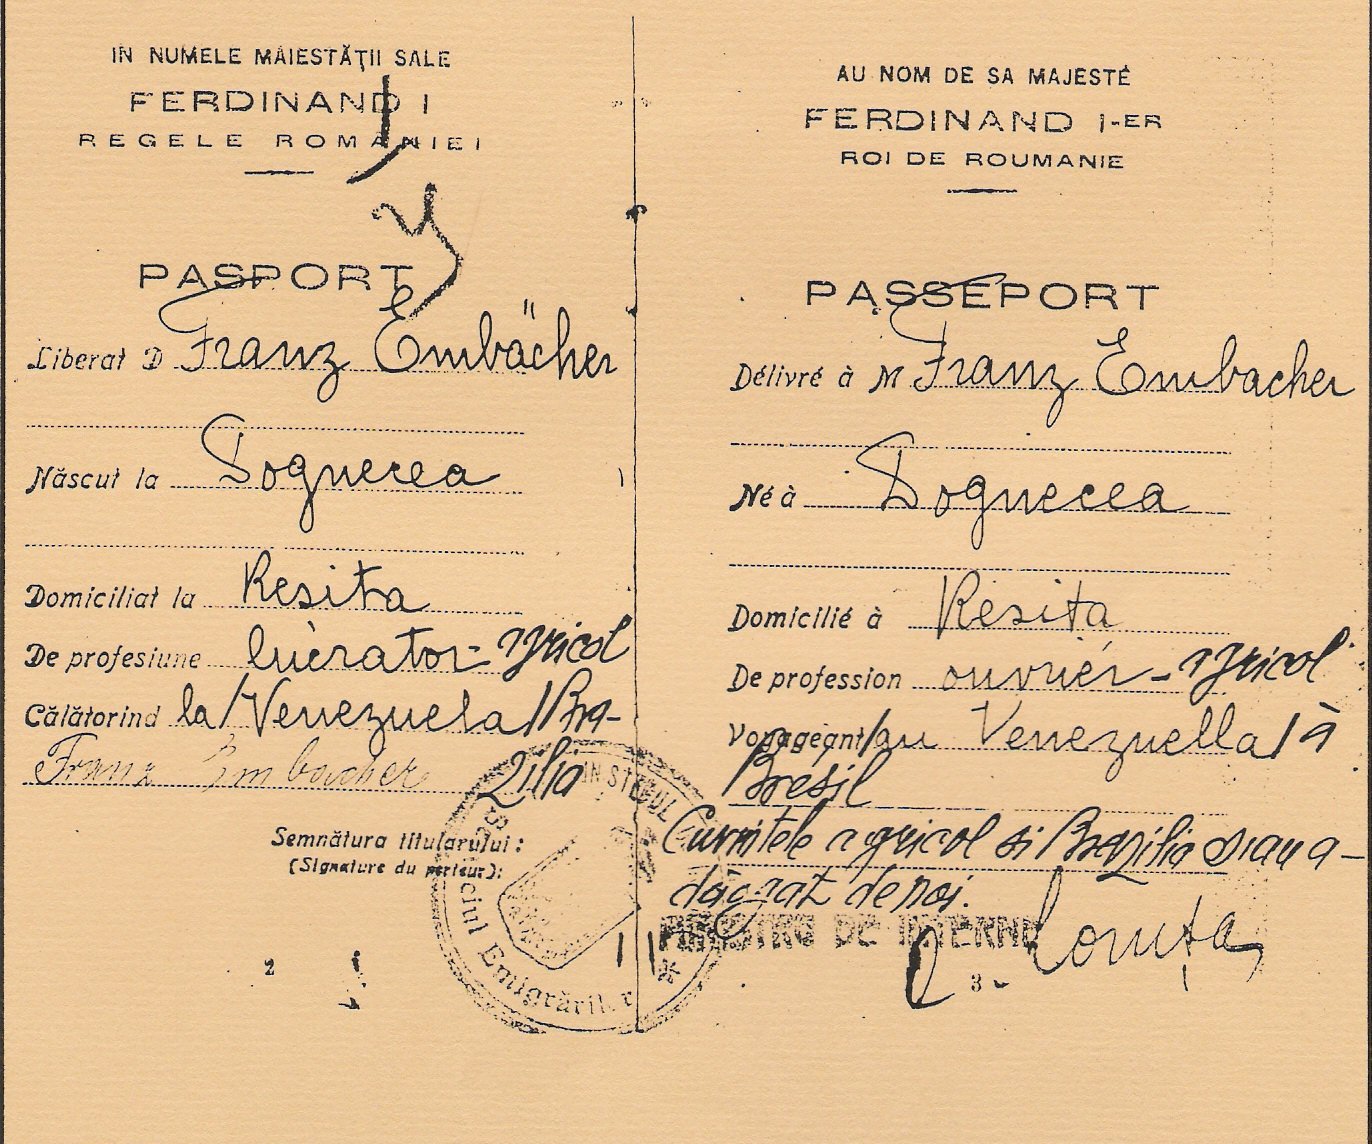 IN NUMELE MAIESTĂȚII SALE
FERDINAND I
REGELE ROMÂNIEI
PASPORT
Liberat D Franz Embächer
Născut la Dognecea
Domiciliat la Resita
De profesiune lucrator-agricol
Călătorind la/Venezuela/Bra-
zilia
Franz Embacher
Semnătura titularului:
(Signature du porteur):
Serviciul Emigrărilor
2
AU NOM DE SA MAJESTÉ
FERDINAND I-ER
ROI DE ROUMANIE
PASSEPORT
Délivré à M Franz Embacher
Né à Dognecea
Domicilié à Résita
De profession ouvriér-agricol
Voyageant/au Venezuella/à
Bresil
Cuvintele agricol si Brazilia s'au a-
daogat de noi.
DE INTERNE
3